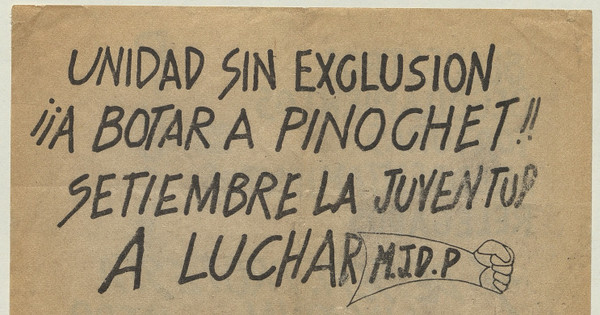 UNIDAD SIN EXCLUSION
¡¡A BOTAR A PINOCHET!!
SETIEMBRE LA JUVENTUD
A LUCHAR M.J.D.P